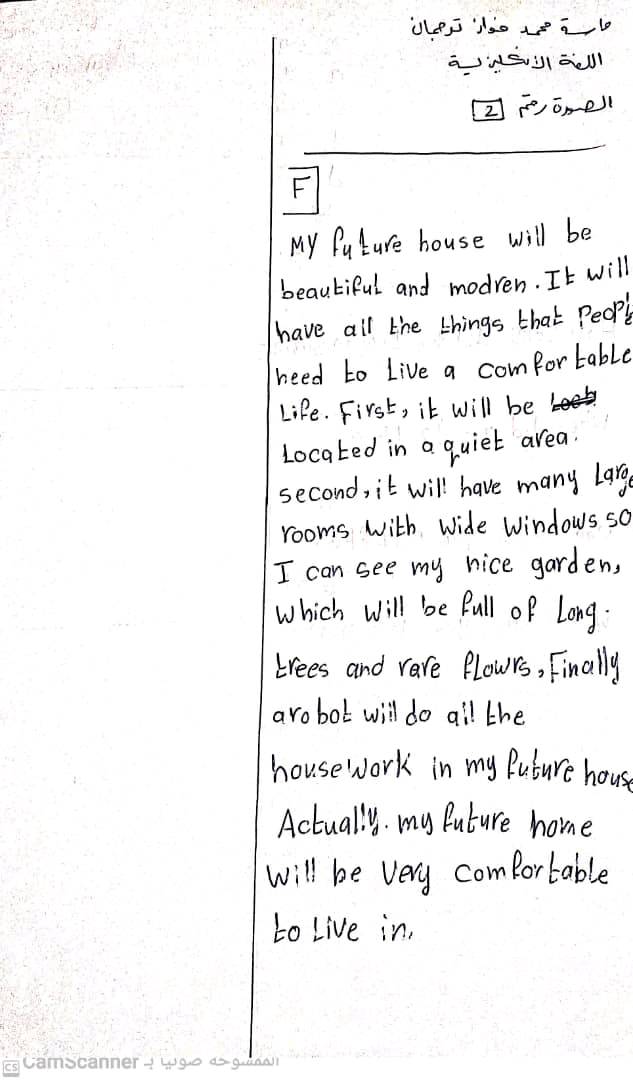 محمد فواز ترجمان
اللغة الانكليزية
الصورة رقم 2
F
MY future house will be
beautiful and modren. It will
have all the things that Peopl
need to Live a comfortable
Life. First, it will be
Located in a quiet area.
second, it will have many Large
rooms With Wide Windows so
I can see my nice garden,
Which Will be full of Long.
trees and rare flowrs, Finally
arobot will do all the
houseWork in my future house
Actually. my future home
Will be Very comfortable
to Live in.
CS CamScanner الممسوحة ضوئيا بـ